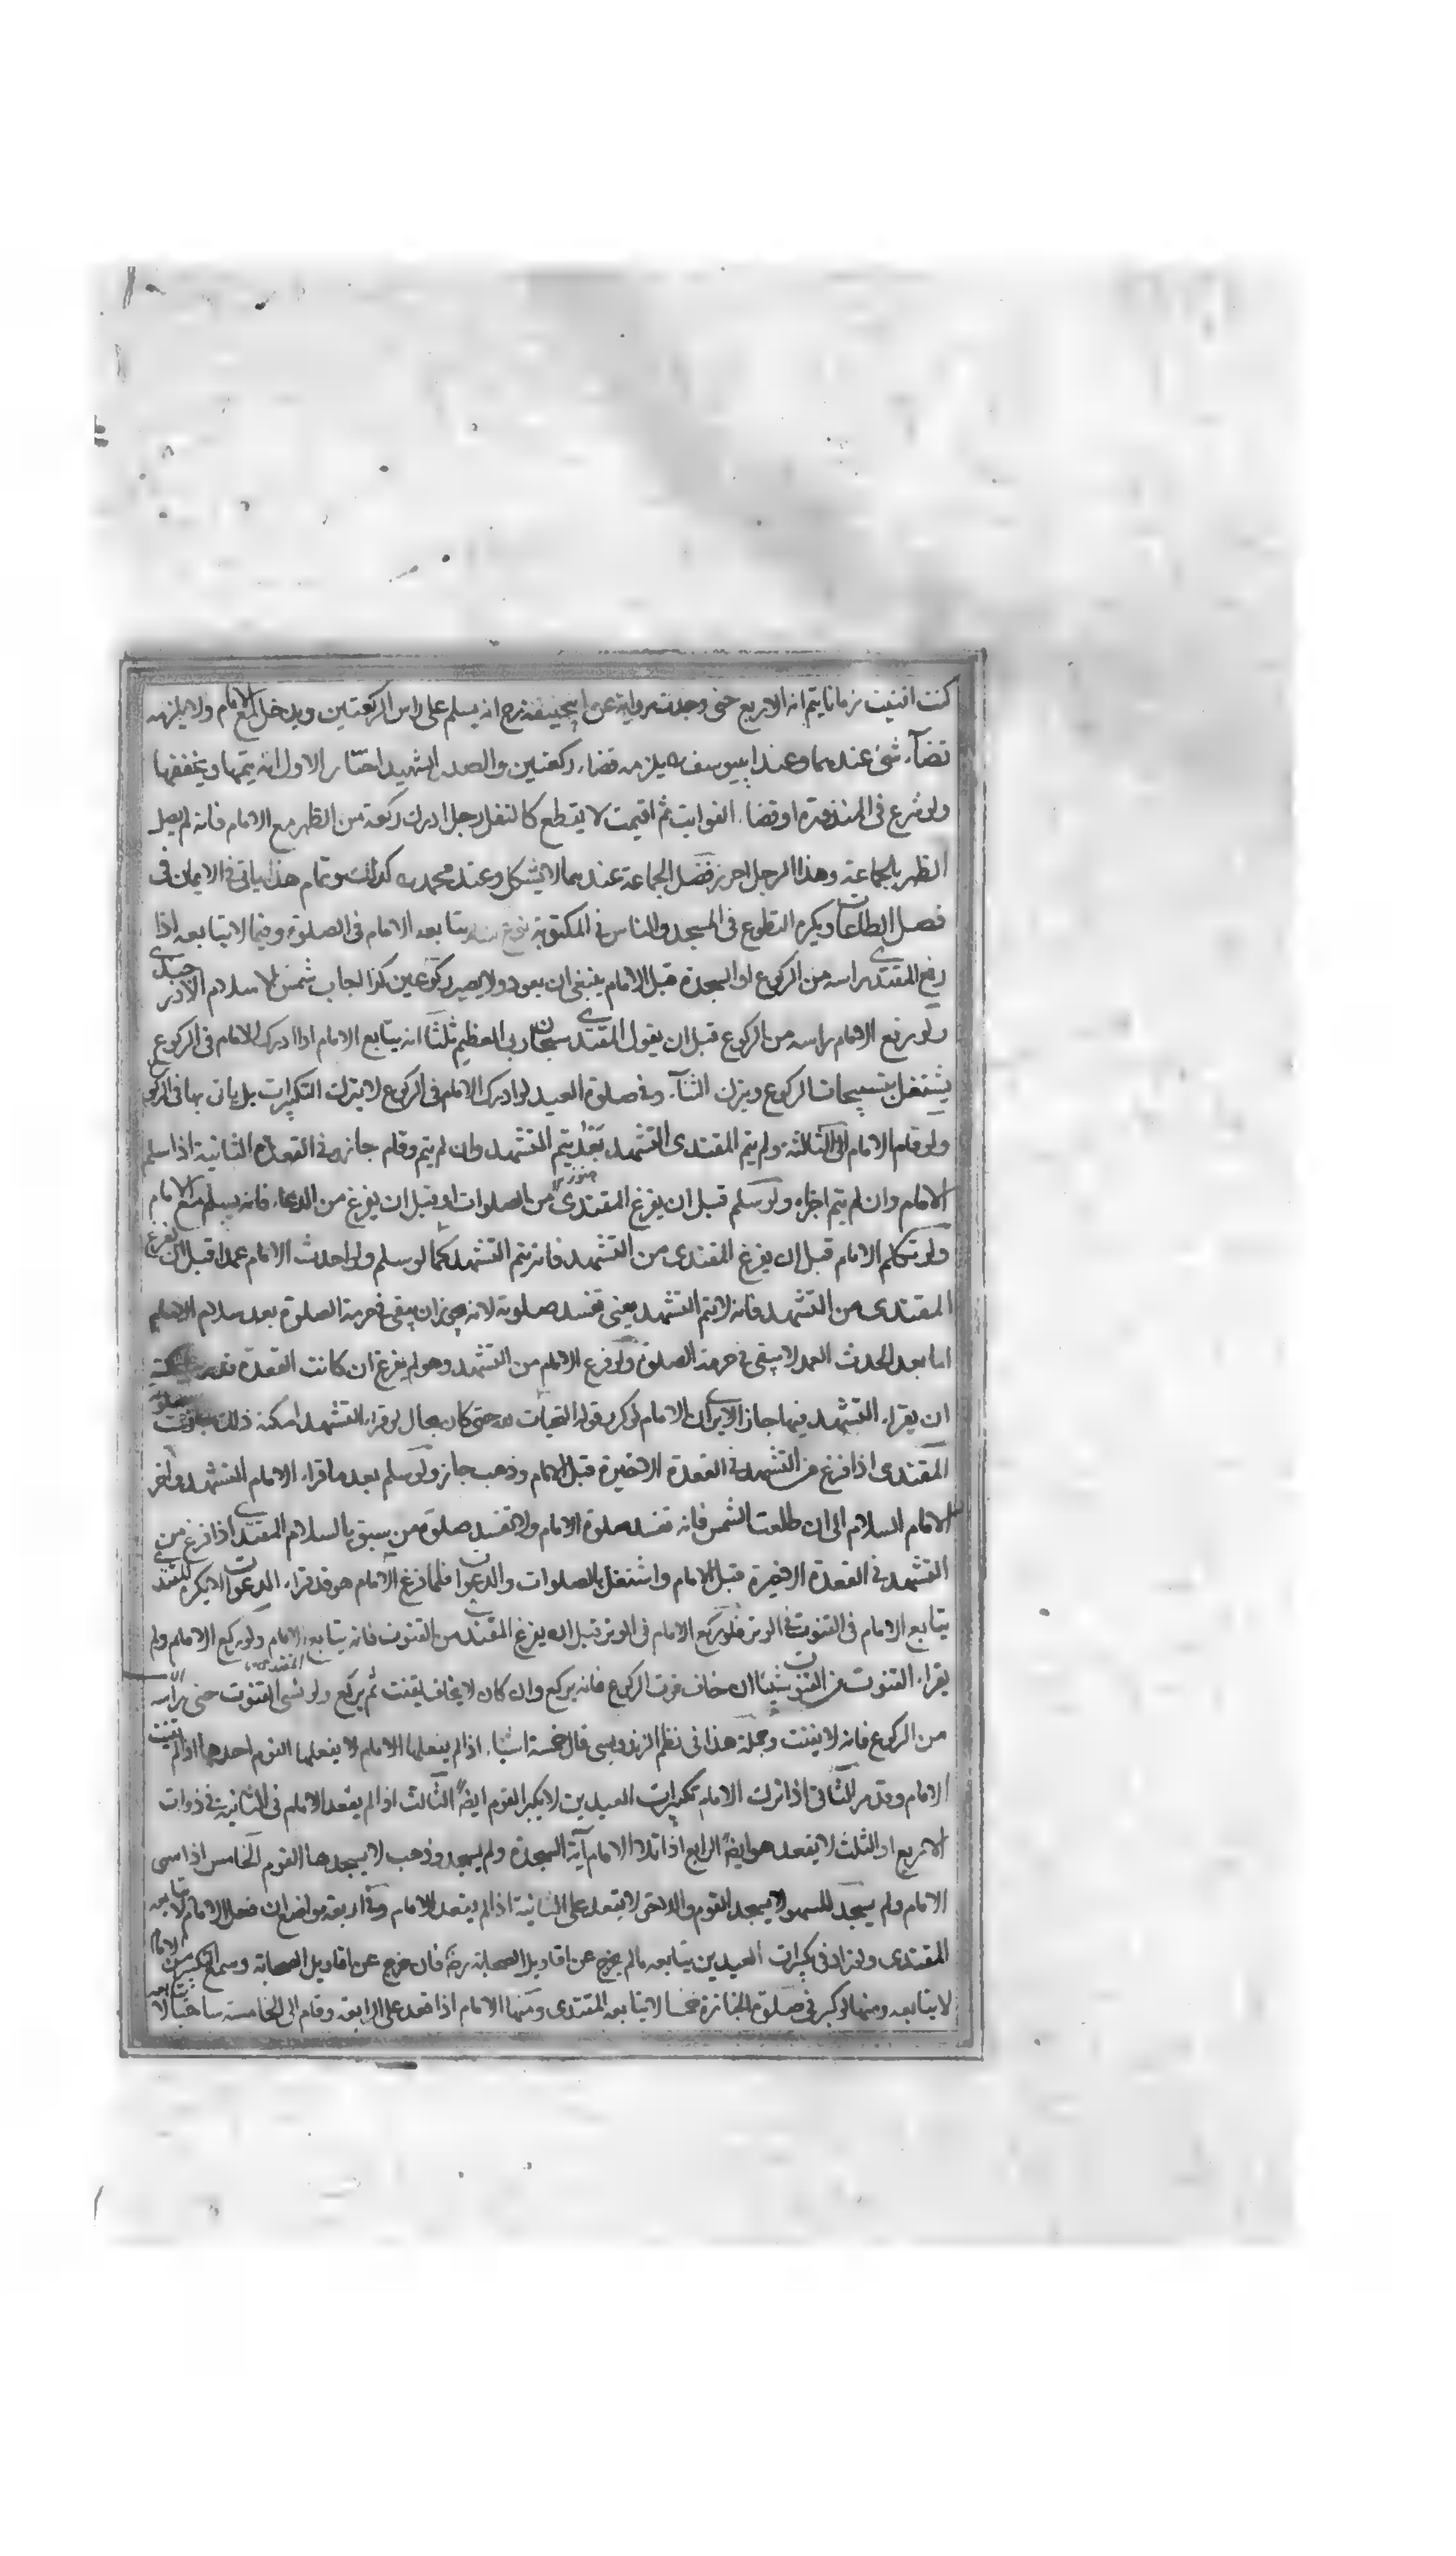 كنت افتيت زمانا يتم انه الاربع حتى وجدت رواية عن ابيحنيفة رح انه يسلم على راس الركعتين ويدخل مع الامام ولا يلزمه
قضآء شئ عندهما وعند ابييوسف يلزمه قضاء ركعتين والصدر الشهيد اختار الاول انه يتمها ويخففها
ولو شرع في المنذورة او قضاء الفوايت ثم اقيمت لا يقطع كالنفل رجل ادرك ركعة من الظهر مع الامام فانه لم يصل
الظهر بالجماعة وهذا الرجل احرز فضل الجماعة عندهما لا يشكل وعند محمد كذلك وتمام هذا ياتى في الايمان في
فصل الطاعات ويكره التطوع في المسجد والناس في المكتوبة نوع يتابعه الامام في الصلوة وفيما لا يتابعه اذا
رفع المقتدى راسه من الركوع او السجدة قبل الامام ينبغي ان يعود ولا يصير ركوعين كذا اجاب شمس الاسلام الاوزجندى
ولو رفع الامام راسه من الركوع قبل ان يقول المقتدى سبحان ربى العظيم ثلثا انه يتابع الامام اذا ادرك الامام في الركوع
يشتغل بتسبيحات الركوع ويترك الثنآء وفي صلوة العيد لو ادرك الامام في الركوع لا يترك التكبيرات بل ياتى بها في الركوع
ولو قام الامام الى الثالثة ولم يتم المقتدى التشهد بعد يتم التشهد وان لم يتم وقام جاز وفي القعدة الثانية اذا سلم
الامام وان لم يتم اجزاه ولو سلم قبل ان يفرغ المقتدى من الصلوات او قبل ان يفرغ من الدعاء فانه يسلم مع الامام
ولو تكلم الامام قبل ان يفرغ المقتدى من التشهد فانه يتم التشهد كما لو سلم ولو احدث الامام عمدا قبل ان يفرغ
المقتدى من التشهد فانه لا يتم التشهد يعنى تفسد صلوته لانه يجوز ان يبقى في حرمة الصلوة بعد سلام الامام
اما بعد الحدث العمد لا يبقى في حرمة الصلوة ولو فرغ الامام من التشهد وهو لم يفرغ ان كانت القعدة قدر
ان يقراء التشهد فيها جاز الايرى ان الامام لو كرر قوله التحيات لله حتى كان بحال لو قراء التشهد امكنه ذلك جازت صلوته
المقتدى اذا فرغ من التشهد في القعدة الاخيرة قبل الامام وذهب جاز ولو سلم بعد ما قراء الامام التشهد واخر
الامام السلام الى ان طلعت الشمس فانه تفسد صلوة الامام ولا تفسد صلوة من سبق بالسلام المقتدى اذا فرغ من
التشهد في القعدة الاخيرة قبل الامام واشتغل بالصلوات والدعوات فلما فرغ الامام هو قد قراء الدعوات لا يكره المقتدى
يتابع الامام في القنوت في الوتر فلو ركع الامام في الوتر قبل ان يفرغ المقتدى من القنوت فانه يتابع الامام ولو ركع الامام ولم
يقراء القنوت المقتدى من القنوت شيئا ان خاف فوت الركوع فانه يركع وان كان لا يخاف يقنت ثم يركع ولو نسى القنوت حتى راسه
من الركوع فانه لا يقنت وجملة هذا في نظم الزندويسى قال خمسة اشياء اذا لم يفعلها الامام لا يفعلها القوم احدها اذا لم يقنت
الامام وقد مر الثانى اذا ترك الامام تكبيرات العيدين لا يكبر القوم ايضا الثالث اذا لم يقعد الامام في الثانية في ذوات
الاربع او الثلث لا يقعد هو ايضا الرابع اذا تلا الامام آية السجدة ولم يسجد وذهب لا يسجدها القوم الخامس اذا سهى
الامام ولم يسجد للسهو لا يسجد القوم واللاحق لا يقعد على الثانية اذا لم يقعد الامام وفي اربعة مواضع ان فعل الامام لا يتابعه
المقتدى ولو زاد في تكبيرات العيدين يتابعه ما لم يخرج عن اقاويل الصحابة رضه فان خرج عن اقاويل الصحابة وسمع التكبير من الامام
لا يتابعه ومنها لو كبر في صلوة الجنازة خمسا لا يتابعه المقتدى ومنها الامام اذا قعد على الرابعة وقام الى الخامسة ساهيا لا يتابعه